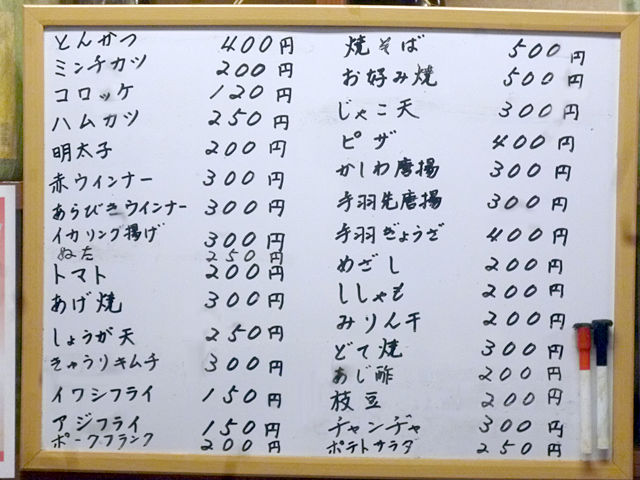 とんかつ 400円
ミンチカツ 200円
コロッケ 120円
ハムカツ 250円
明太子 200円
赤ウインナー 300円
あらびきウインナー 300円
イカリング揚げ 300円
ぬた 250円
トマト 200円
あげ焼 300円
しょうが天 250円
きゅうりキムチ 300円
イワシフライ 150円
アジフライ 150円
ポークフランク 200円
焼そば 500円
お好み焼 500円
じゃこ天 300円
ピザ 400円
かしわ唐揚 300円
手羽先唐揚 300円
手羽ぎょうざ 400円
めざし 200円
ししゃも 200円
みりん干 200円
どて焼 300円
あじ酢 200円
枝豆 200円
チャンヂャ 300円
ポテトサラダ 250円